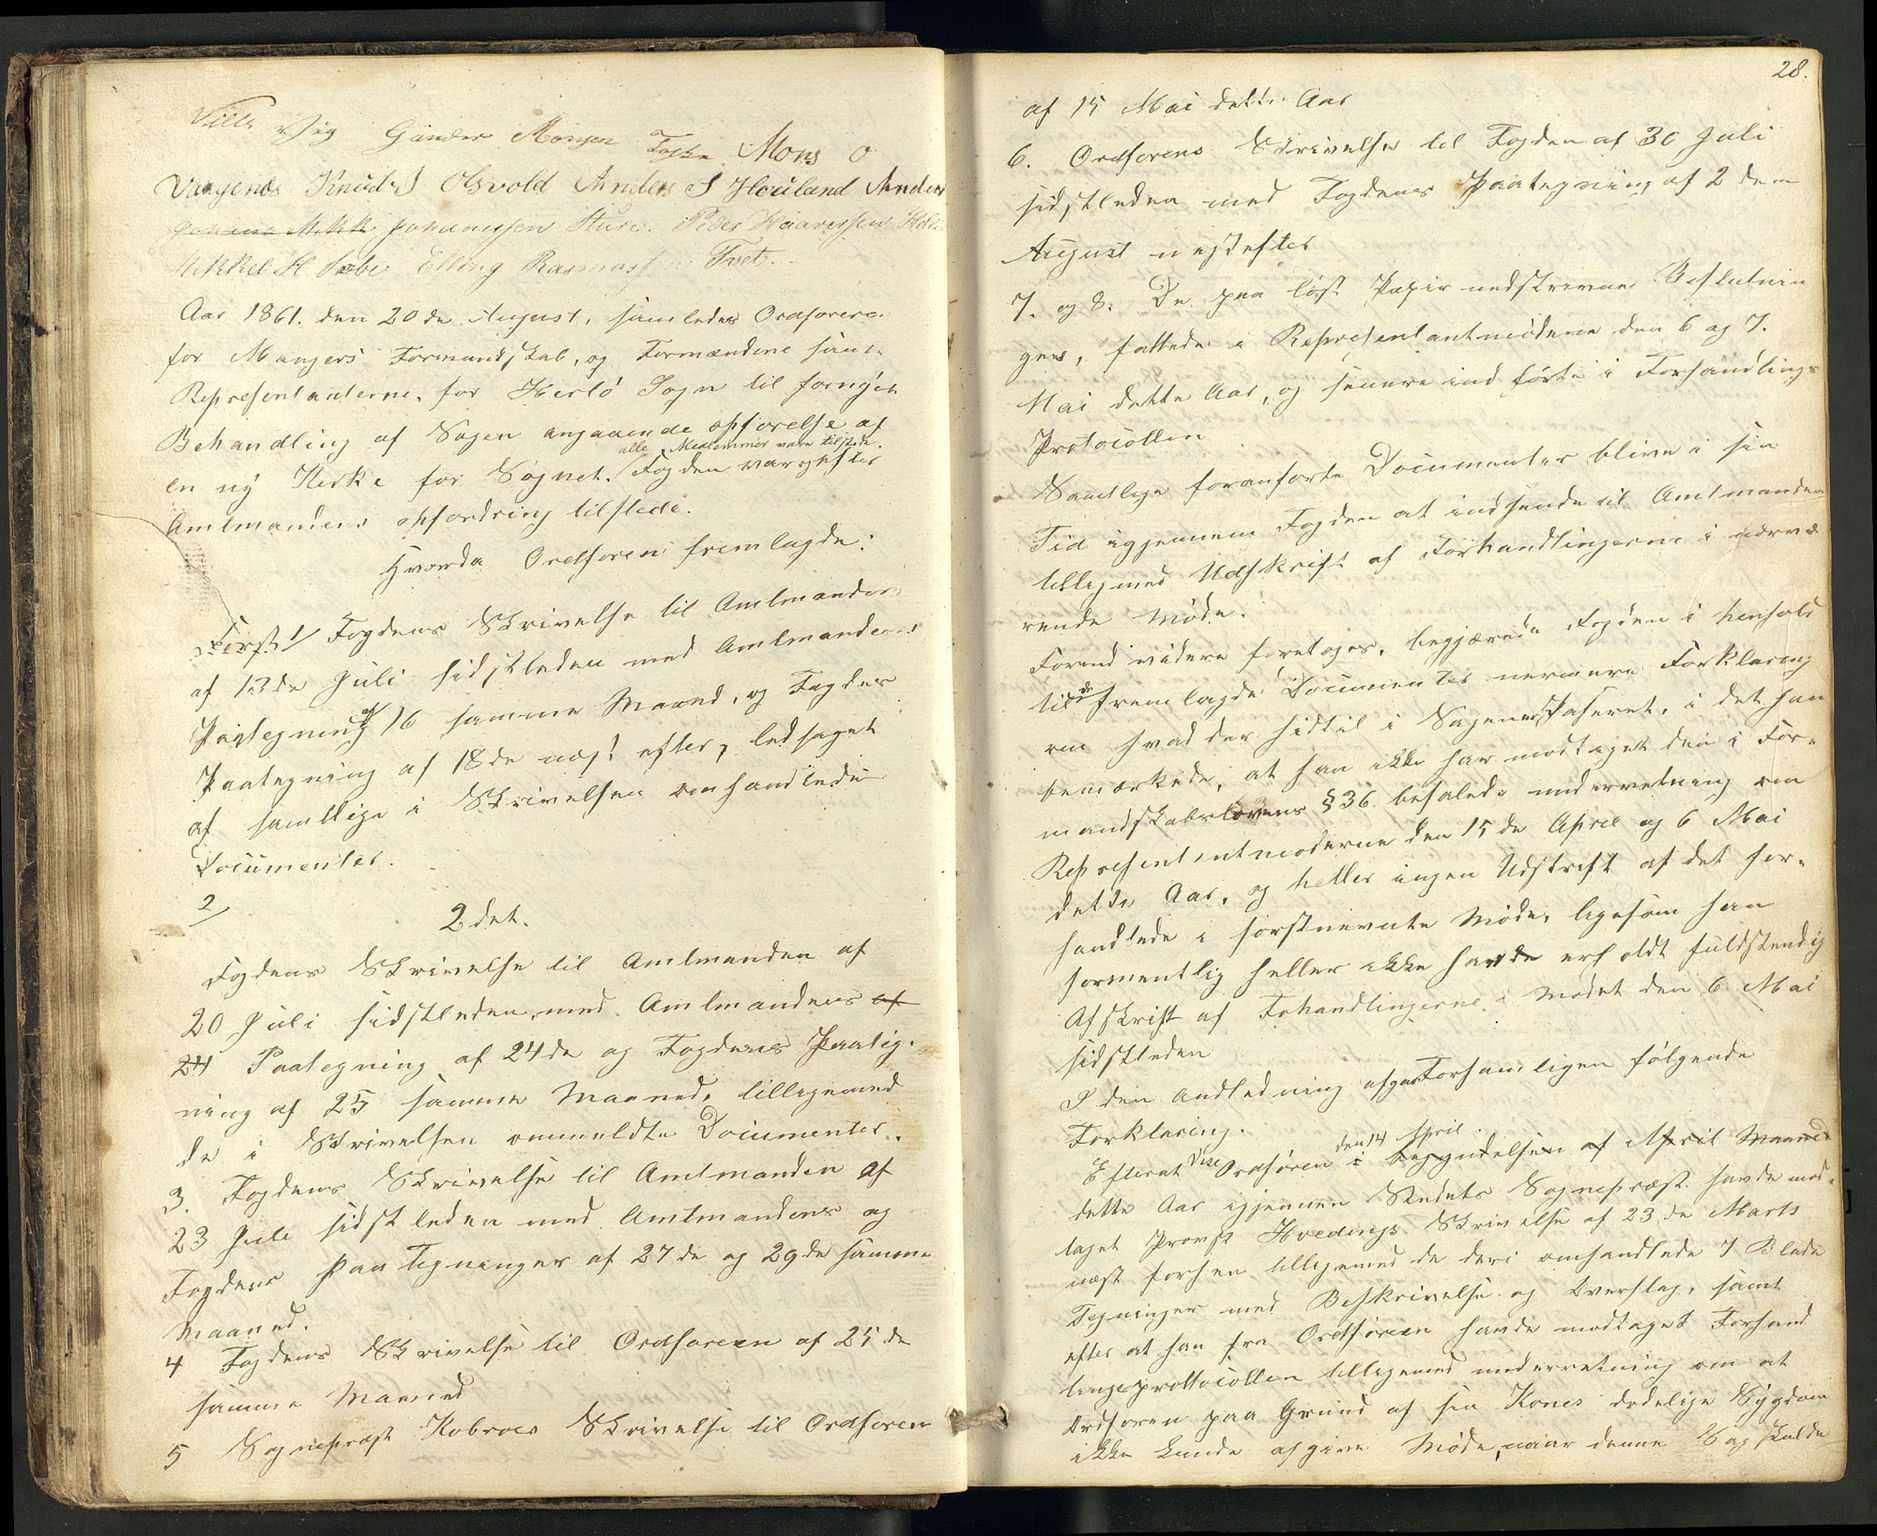 Gunder Monsen Mons O
Vaagenes Knud J Olsvold Anders J Houland Anders
Johannessen Sture. Peder Haaversen
Mikkel H Sæbe Elling Rasmussen Tvet.
Aar 1861. den 20de August, samledes Ordføreren
for Mangers Formandskab, og Formændene samt
Repræsentanterne for Herlø Sogn til fornyet
Behandling af Sagen angaaende opførelse af
alle Medlemmer vare tilstede.
en ny Kirke for Sognet. Fogden var efter
Amtmandens opfordring tilstede.
Hvorda Ordføreren fremlagde:
Først 1/ Fogdens Skrivelse til Amtmanden
af 13de Juli sidstleden med Amtmandens
Paategning af 16 samme Maaned, og Fogdens
Paategning af 18de næst efter, ledsaget
af samtlige i Skrivelsen omhandlede
Documenter.
2/
2det.
Fogdens Skrivelse til Amtmanden af
20 Juli sidstleden, med Amtmandens af
24 Paategning af 24de og Fogdens Paateg-
ning af 25 samme Maaned, tilligemed
de i Skrivelsen ommeldte Documenter.
3. Fogdens Skrivelse til Amtmanden af
23 Juli sidstleden med Amtmandens og
Fogdens Paategninger af 27de og 29de samme
Maaned.
4 Fogdens Skrivelse til Ordføreren af 25de
samme Maaned
5 Sognepræst Kobroes Skrivelse til Ordføreren
28.
af 15 Mai dette Aar
6. Ordførerens Skrivelse til Fogden af 30 Juli
sidstleden med Fogdens Paategning af 2den
August næstefter
7. og 8. De paa løst Papir nedskrevne Beslutnin
ger, fattede i Repræsentantmøderne den 6 og 7.
Mai dette Aar, og senere indførte i Forhandlings
Protocollen
Samtlige foranførte Documenter blive i sin
Tid igjennem Fogden at indsende til Amtmanden
tilligemed Udskrift af Forhandlingerne i nærvæ
rende Møde.
Forend videre foretoges, begjærede Fogden i henhold
til de fremlagde Documenter nærmere Forklaring
om hvad der hidtil i Sagen er Paseret, i det han
bemærkede, at han ikke har modtaget den i For-
mandskabslovens § 36 befalede underretning om
Repræsentantmøderne den 15de April og 6 Mai
dette Aar, og heller ingen Udskrift af det for-
handlede i førstnevnte Møde, ligesom han
formentlig heller ikke havde erholdt fuldstendig
Afskrift af Fohandlingerne i Mødet den 6 Mai
sidstleden
I den Andledning afgav Forsamligen følgende
Forklaring.
den 14 April.
Efterat Ordføren i begyndelsen af April Maaned
dette Aar igjennem Stedets Sognepræst havde mod-
taget Provst Hvedings Skrivelse af 23de Marts
næst forhen tilligemed de deri omhandlede 7 Blade
Tegninger med Beskrivelse og Overslag, samt
efter at han fra Ordføreren havde modtaget Forhand
lingsprottocollen tilligemed underretning om at
Ordføren paa Grund af sin Kones dødelige Sygdom
ikke kunde afgive Møde, naar denne Sag skulde